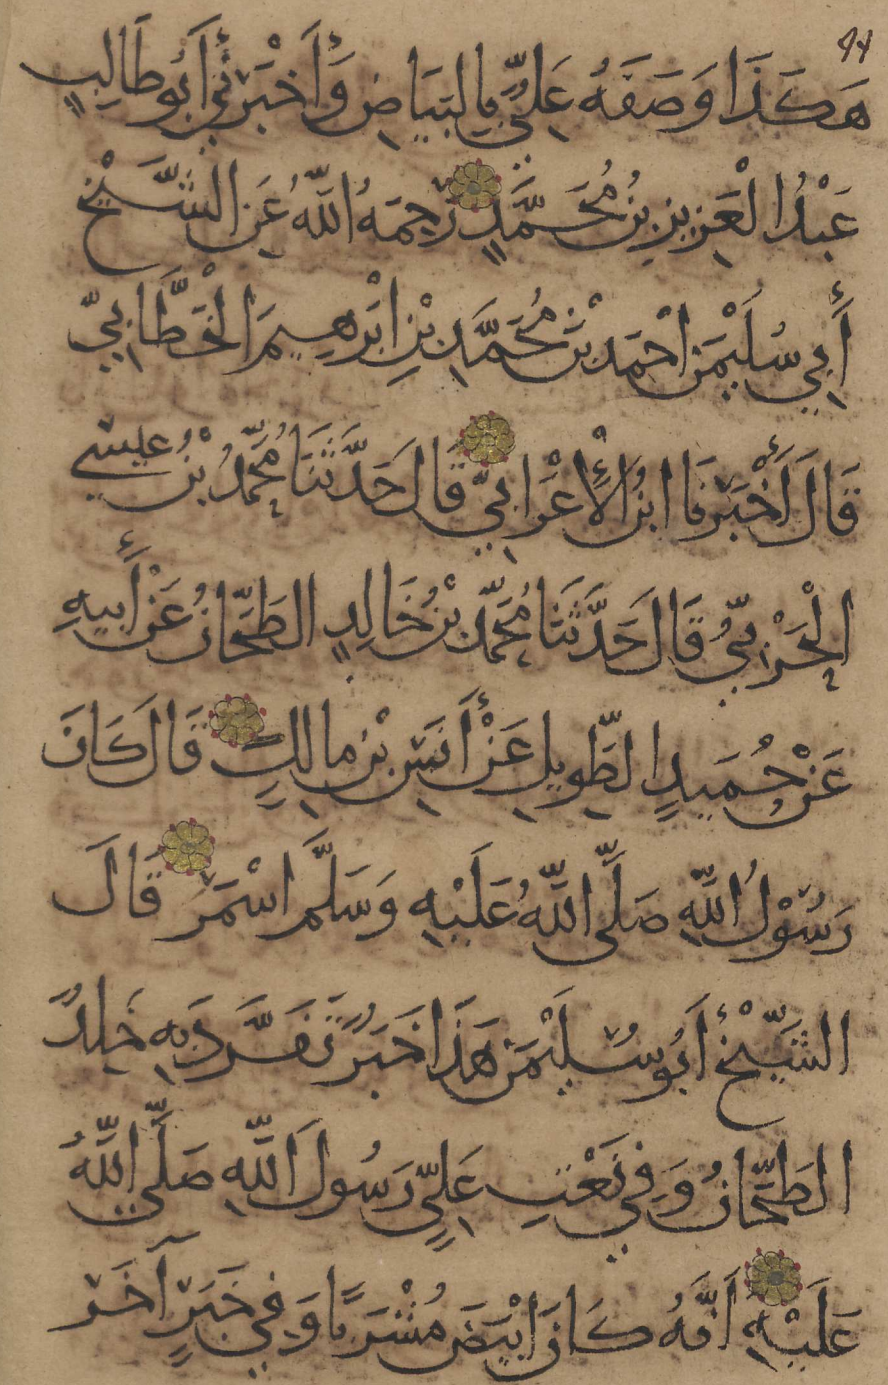 هَكَذَا وَصَفَهُ عَلِيٌّ بِالبَيَاضِ وَأَخْبَرَنِي أَبُو طَالِبٍ
عَبْدُ الْعَزِيزِ بنُ مُحَمَّدٍ رَحِمَهُ اللَّهُ عَنِ الشَّيْخِ
أَبِي سُلَيْمَنَ احْمَدَ بْنَ مُحَمَّدِ بْنِ ابْرَهِيمَ الْخَطَّابِيِّ
قَالَ أَخْبَرَنَا ابنُ الْأَعْرَابِيِّ قَالَ حَدَّثَنَا مُحَمَّدُ بْنُ عِيسَى
الْحَرْبِيُّ قَالَ حَدَّثَنَا مُحَمَّدُ بْنُ خَالِدٍ الطَّحَّانُ عَنْ أَبِيهِ
عَنْ حُمَيدٍ الطَّوِيلِ عَنْ أَنَسِ بْنِ مالِكٍ قَالَ كَانَ
رَسُوْلُ اللَّهِ صَلَّى اللَّهُ عَلَيْهِ وَسَلَّمَ اسْمَرَ قَالَ
الشَّيْخُ أَبُو سُلَيْمَنَ هَذَا خَبَرٌ تَفَرَّدَ بِهِ خلِدٌ
الطَّحَّانُ وَفِي نَعْتِ عَلِيٍّ رَسُولَ اللَّهِ صَلَّى اللَّهُ
عَلَيْهِ أَنَّهُ كَانَ ابْيَضَ مُشْرَبًا وَفِي خَبَرٍ آخَرَ